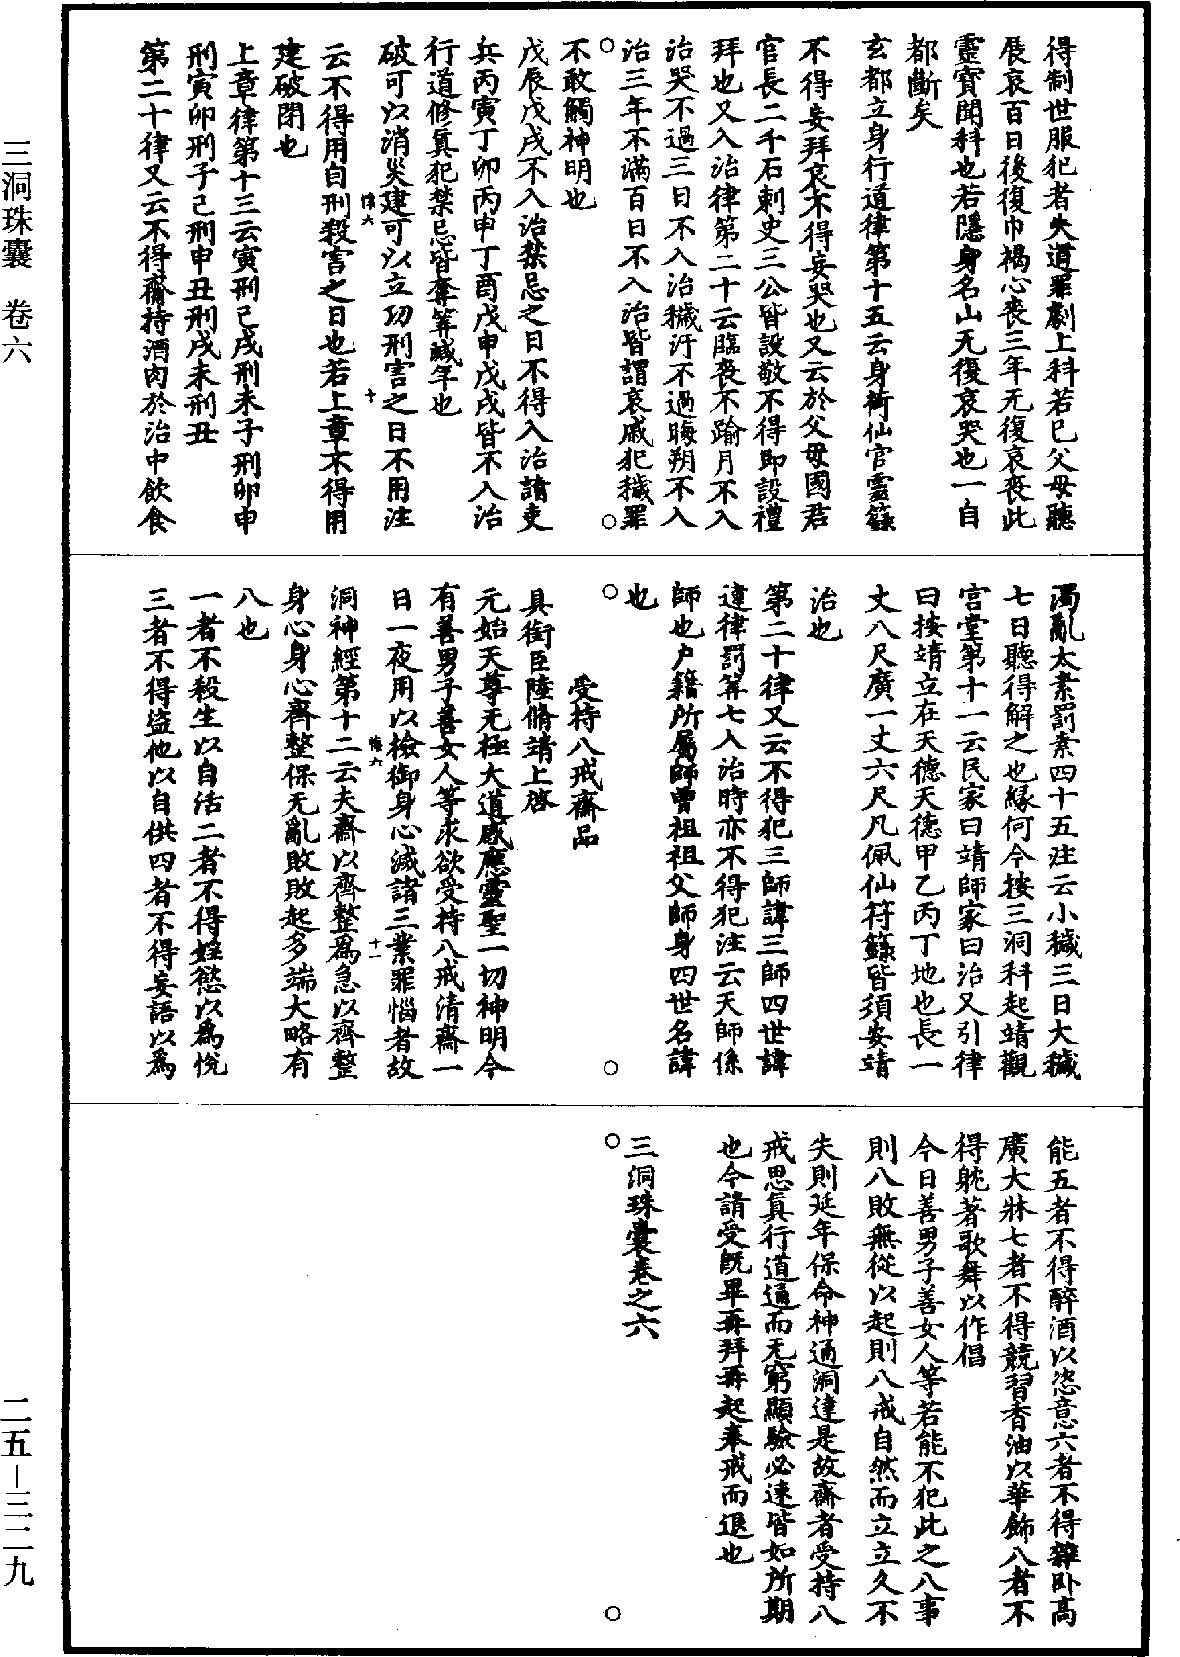 得制世服犯者失道罪劇上科若已父母聽
展哀百日後復巾褐心喪三年无復哀喪此
靈寶開科也若隱身名山无復哀哭也一自
都斷矣
玄都立身行道律第十五云身荷仙官靈籙
不得妄拜哀不得妄哭也又云於父母國君
官長二千石刺史三公皆設敬不得即設禮
拜也又入治律第二十云臨喪不踰月不入
治哭不過三日不入治穢汙不過晦朔不入
治三年不滿百日不入治皆謂哀戚犯穢罪
不敢觸神明也
戊辰戊戌不入治禁忌之日不得入治請吏
兵丙寅丁卯丙申丁酉戊申戊戌皆不入治
行道修真犯禁忌皆奪筭減年也
破可以消災建可以立功刑害之日不用注
云不得用自刑殺害之日也若上章不得用
建破閉也
上章律第十三云寅刑巳戌刑未子刑卯申
刑寅卯刑子巳刑申丑刑戌未刑丑
第二十律又云不得齎持酒肉於治中飲食
濁亂太素罰素四十五注云小穢三日大穢
七日聽得解之也緣何今按三洞科起靖觀
宮堂第十一云民家曰靖師家曰治又引律
曰按靖立在天德天德甲乙丙丁地也長一
丈八尺廣一丈六尺凡佩仙符籙皆須安靖
治也
第二十律又云不得犯三師諱三師四世諱
違律罰筭七入治時亦不得犯注云天師係
師也户籍所屬師曾祖祖父師身四世名諱
也
受持八戒齋品
具銜臣陸脩靖上啓
元始天尊无極大道感應靈聖一切神明今
有善男子善女人等求欲受持八戒清齋一
日一夜用以檢御身心滅諸三業罪惱者故
洞神經第十二云夫齋以齊整為急以齊整
身心身心齊整保无亂敗敗起多端大略有
八也
一者不殺生以自活二者不得婬慾以為悅
三者不得盜他以自供四者不得妄語以為
能五者不得醉酒以恣意六者不得雜卧高
廣大牀七者不得競習香油以華飾八者不
得躭著歌舞以作倡
今日善男子善女人等若能不犯此之八事
則八敗無從以起則八戒自然而立立久不
失則延年保命神通洞達是故齋者受持八
戒思真行道道通而无窮顯驗必速皆如所期
也今請受既畢再拜再起奉戒而退也
三洞珠囊卷之六
三洞珠囊 卷六
二五－三二九